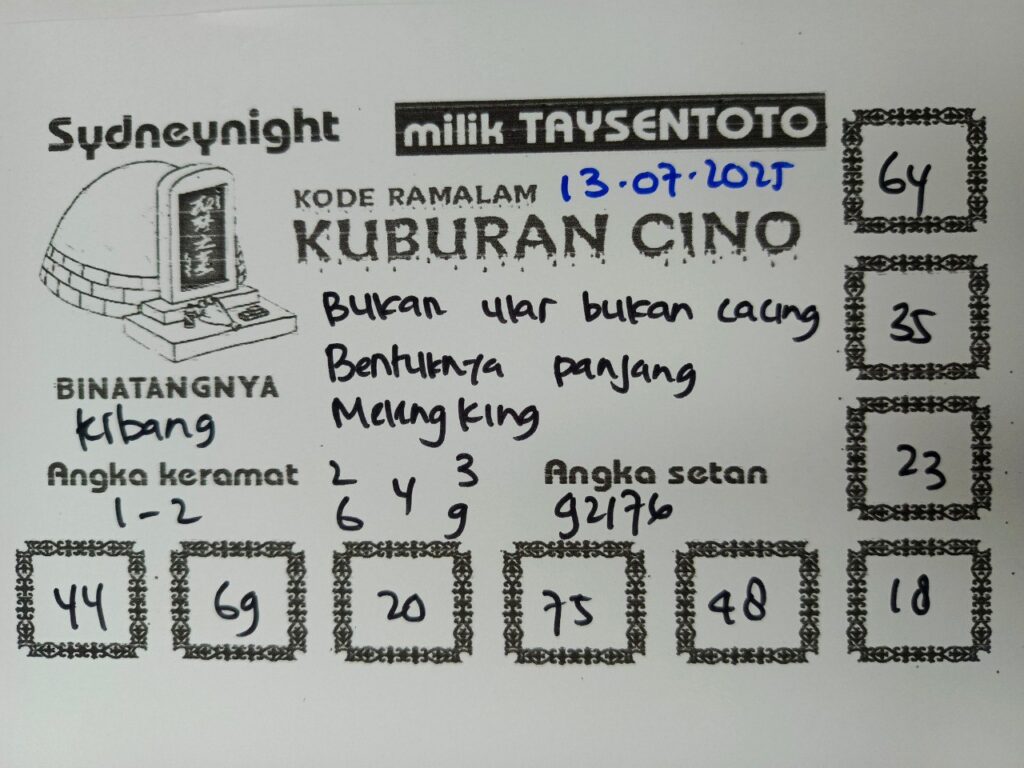 Sydneynight
milik TAYSENTOTO
KODE RAMALAM 13.07.2025
KUBURAN CINO
Bukan ular bukan cacing
Bentuknya panjang
Melengking
BINATANGNYA
Kibang
Angka keramat
1-2
2 3
4
6 9
Angka setan
92176
64
35
23
44 69 20 75 48 18